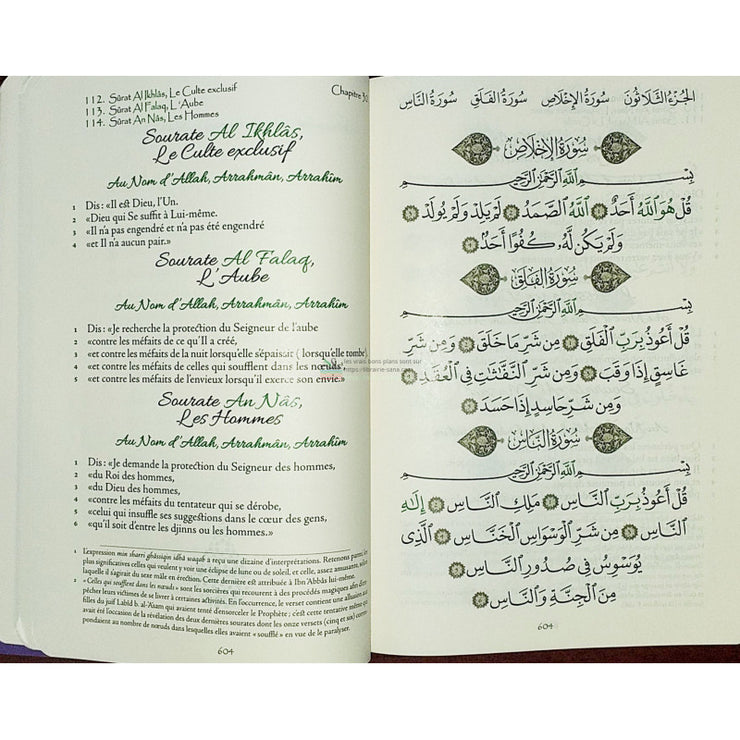 112. Sûrat Al Ikhlâs, Le Culte exclusif
113. Sûrat Al Falaq, L'Aube
114. Sûrat An Nâs, Les Hommes
Chapitre 30
Sourate Al Ikhlâs,
Le Culte exclusif
Au Nom d'Allah, Arrahmân, Arrahîm
1 Dis : «Il est Dieu, l'Un.
2 «Dieu qui Se suffit à Lui-même.
3 «Il n'a pas engendré et n'a pas été engendré
4 «et Il n'a aucun pair.»
Sourate Al Falaq,
L'Aube
Au Nom d'Allah, Arrahmân, Arrahîm
1 Dis : «Je recherche la protection du Seigneur de l'aube
2 «contre les méfaits de ce qu'Il a créé,
3 «et contre les méfaits de la nuit lorsqu'elle s'épaissit ( lorsqu'elle tombe)
4 «et contre les méfaits de celles qui soufflent dans les nœuds
5 «et contre les méfaits de l'envieux lorsqu'il exerce son envie.»
les vrais bons plans sont sur
https://librairie-sana.com
Sourate An Nâs,
Les Hommes
Au Nom d'Allah, Arrahmân, Arrahîm
1 Dis : «Je demande la protection du Seigneur des hommes,
2 «du Roi des hommes,
3 «du Dieu des hommes,
4 «contre les méfaits du tentateur qui se dérobe,
5 «celui qui insuffle ses suggestions dans le cœur des gens,
6 «qu'il soit d'entre les djinns ou les hommes.»
1 L'expression min sharri ghâssiqin idhâ waqab a reçu une dizaine d'interprétations. Retenons parmi les
plus significatives celles qui veulent y voir une éclipse de lune ou de soleil, et celle, assez amusante, selon
laquelle il s'agirait du sexe mâle en érection. Cette dernière est attribuée à Ibn Abbâs lui-même.
2 « Celles qui soufflent dans les nœuds » sont les sorcières qui recourent à des procédés magiques afin d'em-
pêcher leurs victimes de se livrer à certaines activités. En l'occurrence, le verset contient une allusion aux
filles du juif Labîd b. al-A'sam qui avaient tenté d'ensorceler le Prophète ; c'est cette tentative même qui
avait été l'occasion de la révélation des deux dernières sourates dont les onze versets (cinq et six) corres-
pondaient au nombre de nœuds dans lesquelles elles avaient « soufflé » en vue de le paralyser.
604
الجزء الثلاثون سورة الإخلاص سورة الفلق سورة الناس
سورة الإخلاص
بِسْمِ ٱللَّهِ ٱلرَّحْمَٰنِ ٱلرَّحِيمِ
قُلْ هُوَ ٱللَّهُ أَحَدٌ ١ ٱللَّهُ ٱلصَّمَدُ ٢ لَمْ يَلِدْ وَلَمْ يُولَدْ ٣
وَلَمْ يَكُن لَّهُۥ كُفُوًا أَحَدٌۢ ٤
سورة الفلق
بِسْمِ ٱللَّهِ ٱلرَّحْمَٰنِ ٱلرَّحِيمِ
قُلْ أَعُوذُ بِرَبِّ ٱلْفَلَقِ ١ مِن شَرِّ مَا خَلَقَ ٢ وَمِن شَرِّ
غَاسِقٍ إِذَا وَقَبَ ٣ وَمِن شَرِّ ٱلنَّفَّٰثَٰتِ فِى ٱلْعُقَدِ ٤
وَمِن شَرِّ حَاسِدٍ إِذَا حَسَدَ ٥
سورة الناس
بِسْمِ ٱللَّهِ ٱلرَّحْمَٰنِ ٱلرَّحِيمِ
قُلْ أَعُوذُ بِرَبِّ ٱلنَّاسِ ١ مَلِكِ ٱلنَّاسِ ٢ إِلَٰهِ
ٱلنَّاسِ ٣ مِن شَرِّ ٱلْوَسْوَاسِ ٱلْخَنَّاسِ ٤ ٱلَّذِى
يُوَسْوِسُ فِى صُدُورِ ٱلنَّاسِ ٥
مِنَ ٱلْجِنَّةِ وَٱلنَّاسِ ٦
604